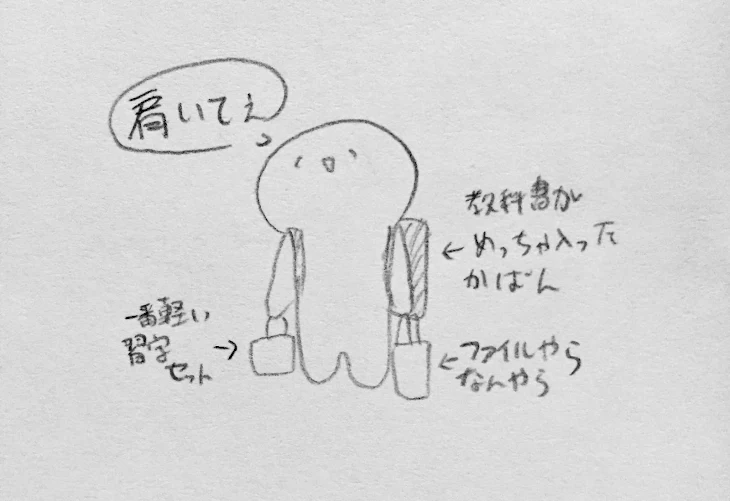 肩いてぇ
教科書が
めっちゃ入った
かばん
←
一番軽い
習字
セット
→
ファイルやら
なんやら
←